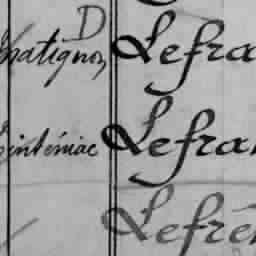 D
hatignon Lefra
inténiac Lefra
Lefre